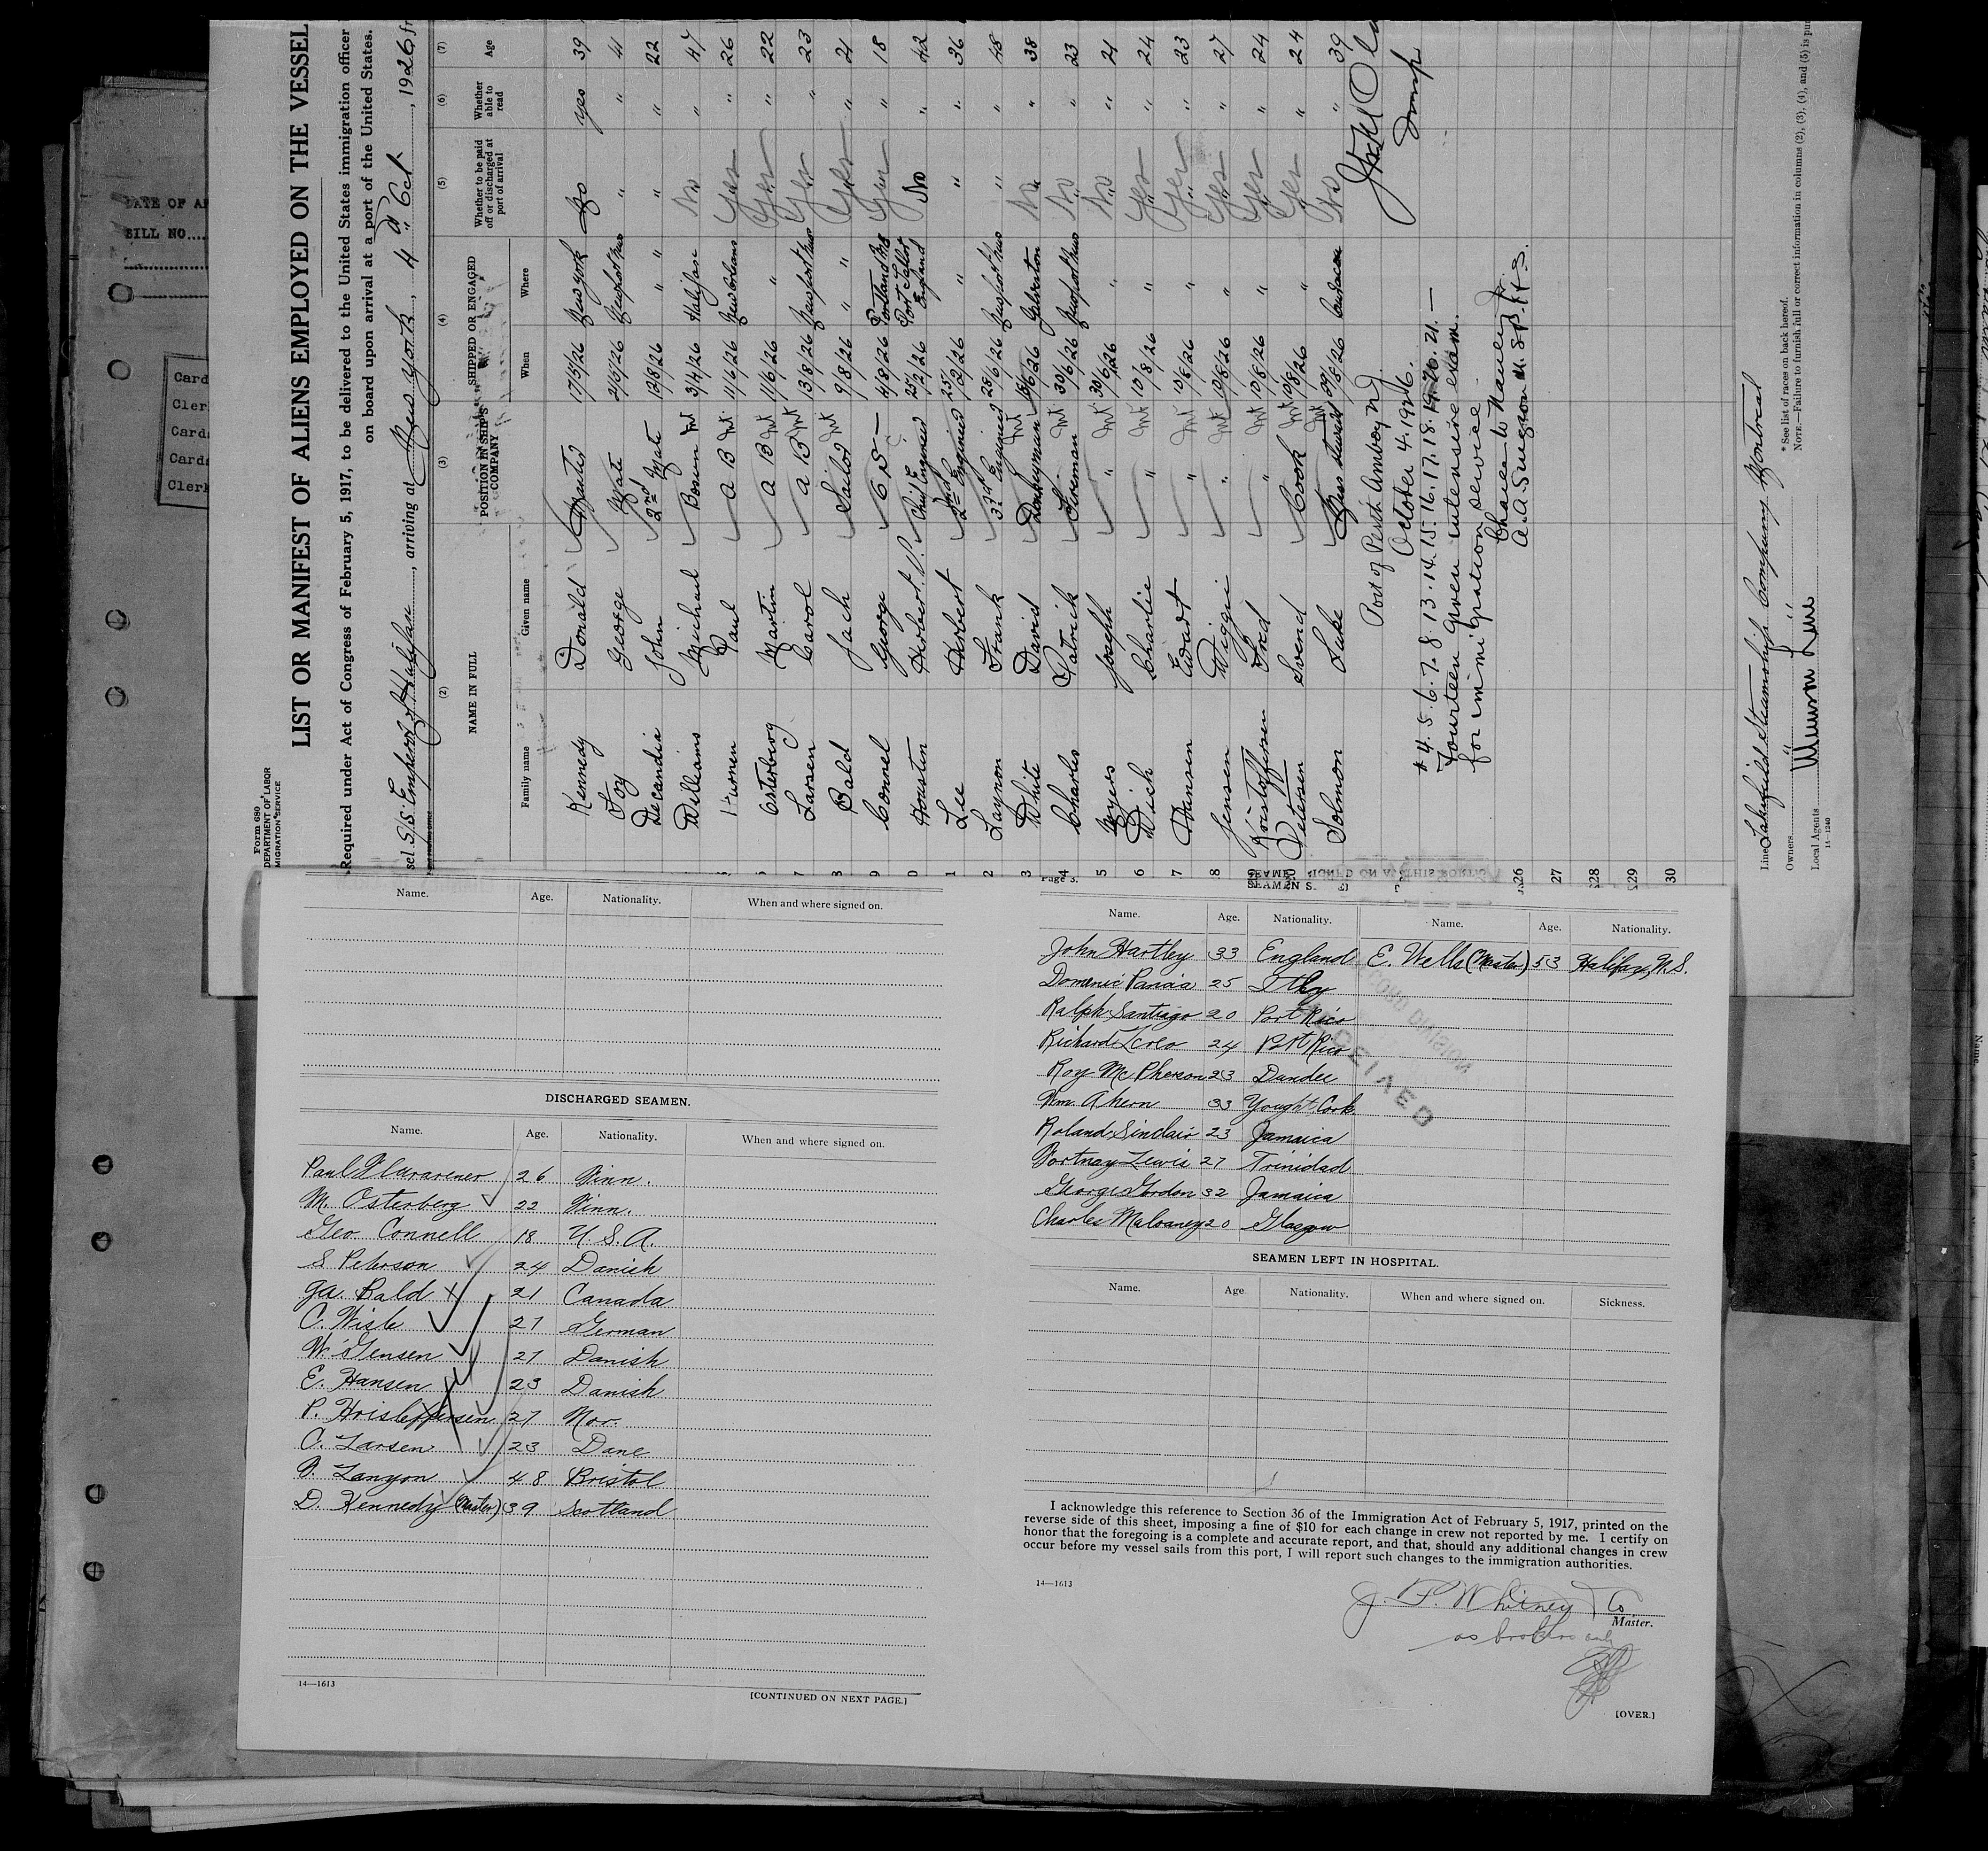 Form 680
DEPARTMENT OF LABOR
MIGRATION SERVICE
LIST OR MANIFEST OF ALIENS EMPLOYED ON THE VESSEL
Required under Act of Congress of February 5, 1917, to be delivered to the United States immigration officer
on board upon arrival at a port of the United States.
sel S/S. Emperor of Halifax, arriving at New York, 4th Oct, 1926
(2) (3) (4) (5) (6) (7)
NAME IN FULL POSITION IN SHIP'S COMPANY SHIPPED OR ENGAGED Whether to be paid off or discharged at port of arrival Whether able to read Age
Family name Given name When Where
Kennedy Donald Master 17/5/26 New York No yes 39
Foy George Mate 21/5/26 Newport News " " 41
Decandia John 2nd Mate 12/8/26 " " " " 22
Williams Michael Bosun 3/4/26 Halifax No " 47
Paul A B 11/6/26 New Orleans Yes " 26
Osterberg Martin A B 11/6/26 " Yes " 22
Larsen Carol A B 13/8/26 Newport News Yes " 23
Bald Jack Sailor 9/8/26 " Yes " 21
Connel George O S 4/8/26 Portland Me Yes " 18
Houston Herbert V. Chief Engineer 25/2/26 Port Talbot England No " 42
Lee Herbert 2nd Engineer 25/2/26 " " " 36
Laynon Frank 3rd Engineer 28/6/26 Newport News " " 48
White David Donkeyman 18/6/26 Galveston No " 38
Charles Patrick Fireman 30/6/26 Newport News No " 23
Joseph " 30/6/26 " No " 21
Charlie " 10/8/26 " Yes " 24
Hansen Edvart " 10/8/26 " Yes " 23
Jensen Wiggie " 10/8/26 " Yes " 27
Kristoffersen Fred " 10/8/26 " Yes " 24
Petersen Svend Cook 10/8/26 " Yes " 24
Solomon Luke Mess Steward 27/8/26 Curacao No " 39
Port of Perth Amboy N.J.
October 4. 1926.
# 4. 5. 6. 7. 8. 13. 14. 15. 16. 17. 18. 19. 20. 21. —
Fourteen given intensive exam.
for immigration service
A. A. Surgeon U. S. P. H. S.
Insp
26
27
28
29
30
Line Lakefield Steamship Company Montreal
Owners "
Local Agents Munson Line
14—1240
* See list of races on back hereof.
NOTE.—Failure to furnish full or correct information in columns (2), (3), (4), and (5) is pu
Name. Age. Nationality. When and where signed on.
DISCHARGED SEAMEN.
Name. Age. Nationality. When and where signed on.
Paul 26 Finn.
M. Osterberg 22 Finn.
Geo. Connell 18 U. S. A.
S Peterson 24 Danish
Ja. Bald 21 Canada
C. Wisle 27 German
W. Jensen 27 Danish
E. Hansen 23 Danish
P. Hristeffersen 27 Nor.
C. Larsen 23 Dane
Lanyon 48 Bristol
D. Kennedy (Master) 39 Scotland
14—1613
[CONTINUED ON NEXT PAGE.]
Page 3.
Name. Age. Nationality. Name. Age. Nationality.
John Hartley 33 England E. Wells (Master) 53 Halifax, N.S.
Domenic 25 Italy
Ralph Santiago 20 Port Rico
Richard 24 Port Rico
Roy McPherson 23 Dundee
Wm. Ahern 33 Yought Cork.
Roland Sinclair 23 Jamaica
Fortnay Lewis 27 Trinidad
George Gordon 32 Jamaica
Charles Maloaney 20 Glasgow
SEAMEN LEFT IN HOSPITAL.
Name. Age. Nationality. When and where signed on. Sickness.
I acknowledge this reference to Section 36 of the Immigration Act of February 5, 1917, printed on the
reverse side of this sheet, imposing a fine of $10 for each change in crew not reported by me. I certify on
honor that the foregoing is a complete and accurate report, and that, should any additional changes in crew
occur before my vessel sails from this port, I will report such changes to the immigration authorities.
14—1613
J. F. Whitney & Co
Master.
as brokers only
[OVER.]